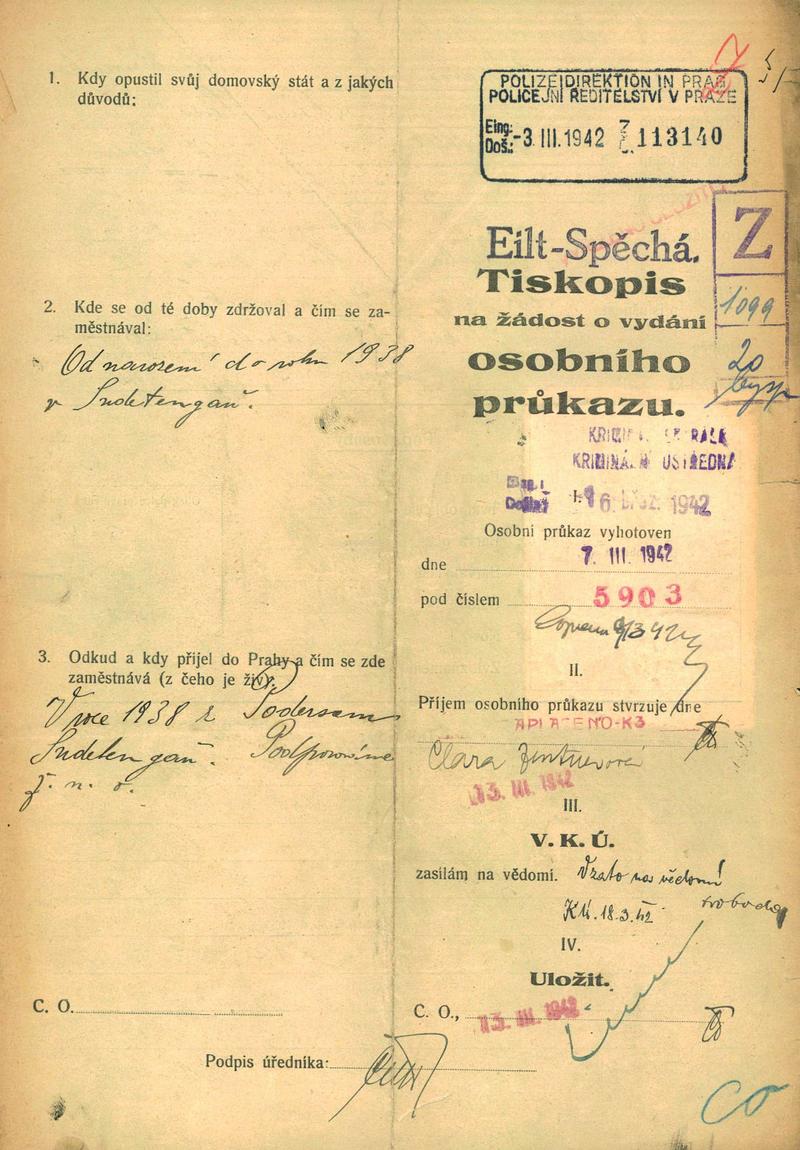 1. Kdy opustil svůj domovský stát a z jakých
důvodů:
2. Kde se od té doby zdržoval a čím se za-
městnával:
Od narození do roku 1938
v Sudetengau.
3. Odkud a kdy přijel do Prahy a čím se zde
zaměstnává (z čeho je živ).
V roce 1938 z Podersam
Sudetengau. Podporována
ž. n. o.
C. O.
Podpis úředníka:
POLIZEIDIREKTION IN PRAG
POLICEJNÍ ŘEDITELSTVÍ V PRAZE
Eing.:
Doš.: -3. III. 1942 Z. Č. 113140
Z
1099
20
Eilt-Spěchá.
Tiskopis
na žádost o vydání
osobního
průkazu.
KRIMINÁLNÍ ÚSTŘEDNA
Došlo 16. BŘEZ. 1942
I.
Osobní průkaz vyhotoven
dne 7. III. 1942
pod číslem 5903
9/3 42
II.
Příjem osobního průkazu stvrzuje dne
ZAPLACENO-K3
Clara Zentnerová
13. III. 1942
III.
V. K. Ú.
zasílám na vědomí. Vzato na vědomí
KÚ. 18.3.42 Svoboda
IV.
Uložit.
C. O., 13. III. 1942
CO